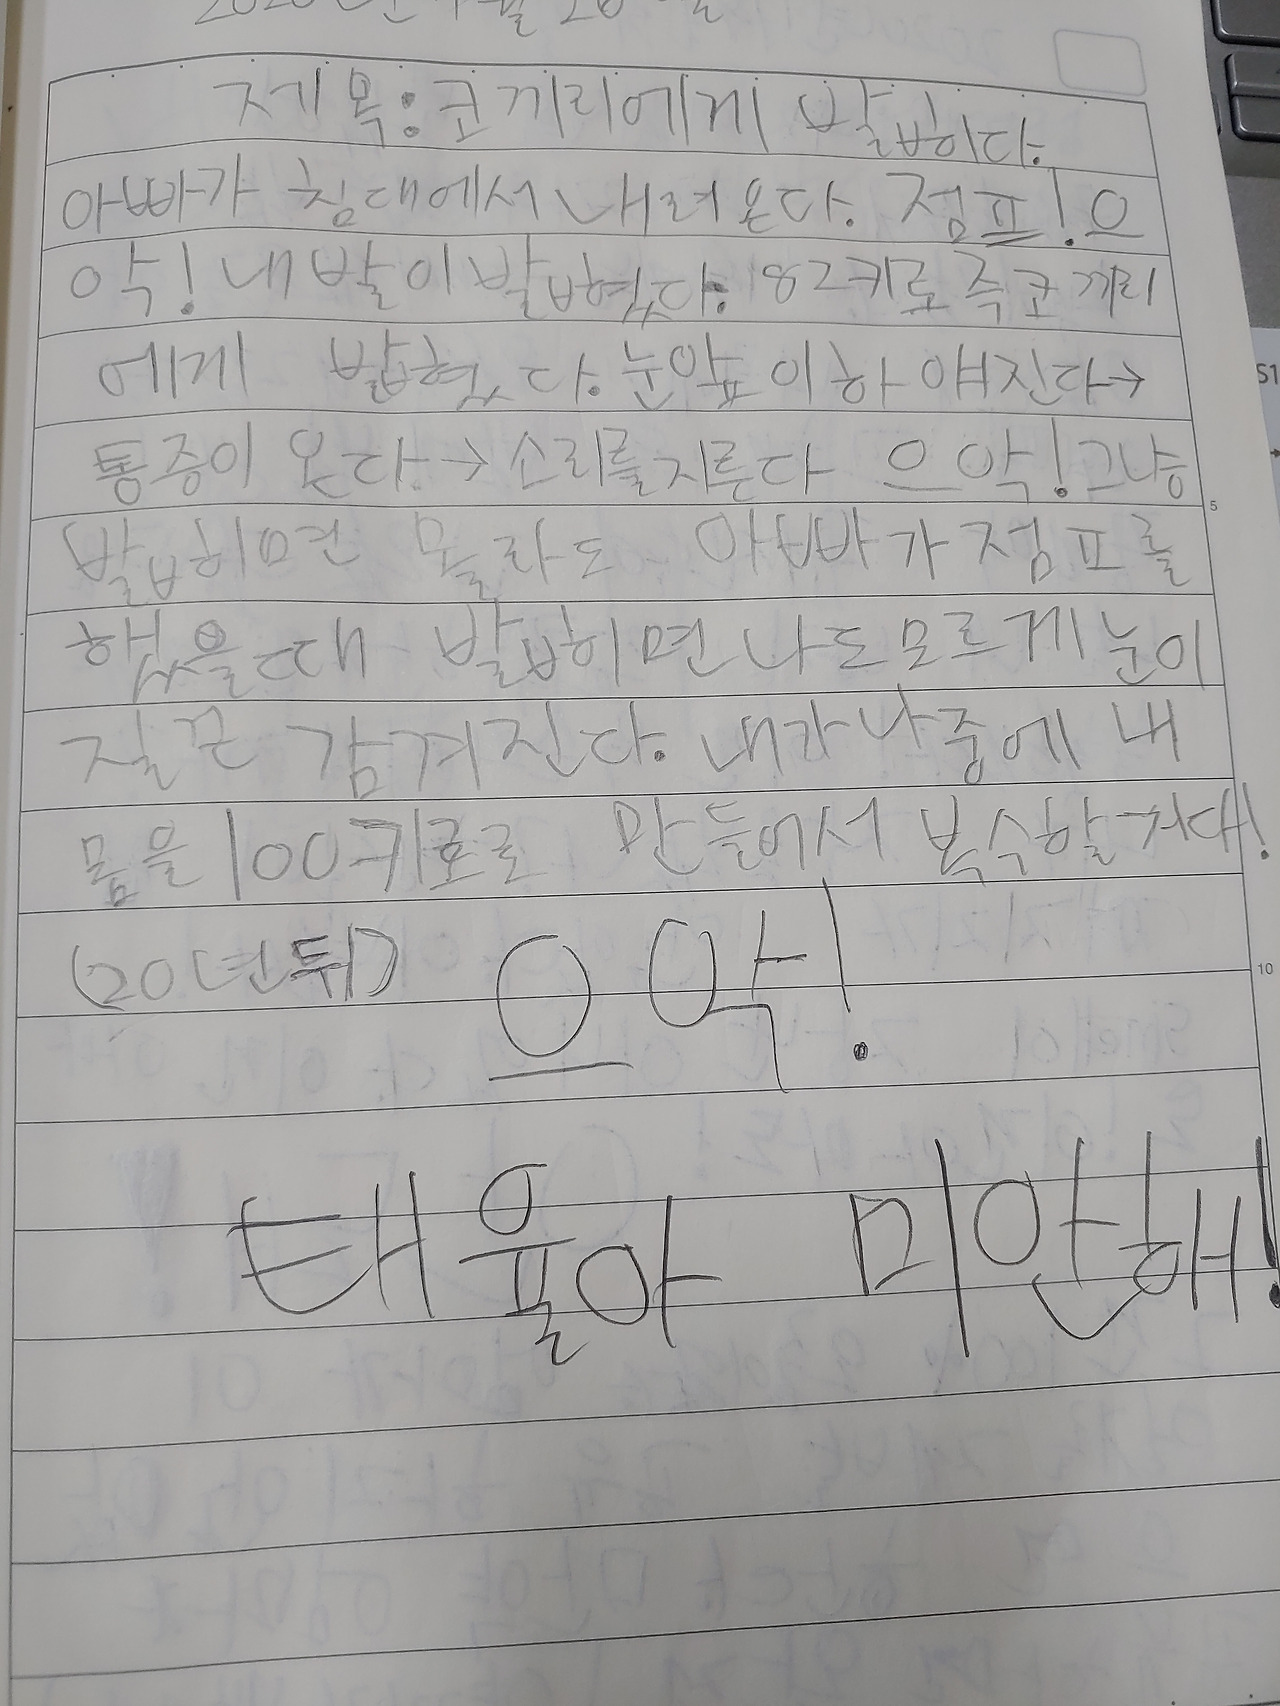 제목:코끼리에게 발밥히다.
아빠가 침대에서 내려온다. 점프! 으
악! 내 발이 발밥혔다. 82키로 즉 코끼리
에게 밟혔다. 눈앞이 하얘진다→
통증이 온다.→소리를 지른다 으악! 그냥
발밥히면 몰라도 아빠가 점프를
했을 때 발밥히면 나도 모르게 눈이
질끈 감겨진다. 내가 나중에 내
몸을 100키로로 만들어서 복수할거다!
(20년 뒤) 으악!
태율아 미안해!
5
10
S1